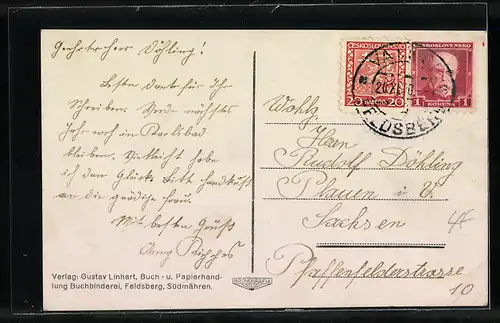 Geehrter Herr Döhling!
Besten Dank für Ihr
Schreiben. Werde nächstes
Jahr noch in Karlsbad
bleiben. Vielleicht habe
ich das Glück. Bitte Handkuß
an die gnädige Frau.
Mit besten Gruß
Verlag: Gustav Linhart, Buch- u. Papierhand-
lung Buchbinderei, Feldsberg, Südmähren.
ČESKOSLOVENSKO
20 20
ČESKOSLOVENSKO
1 KORUNA 1
FELDSBERG
Wohlg.
Herrn
Rudolf Döhling
Plauen i. V.
Sachsen
Pfaffenfelderstrasse
10